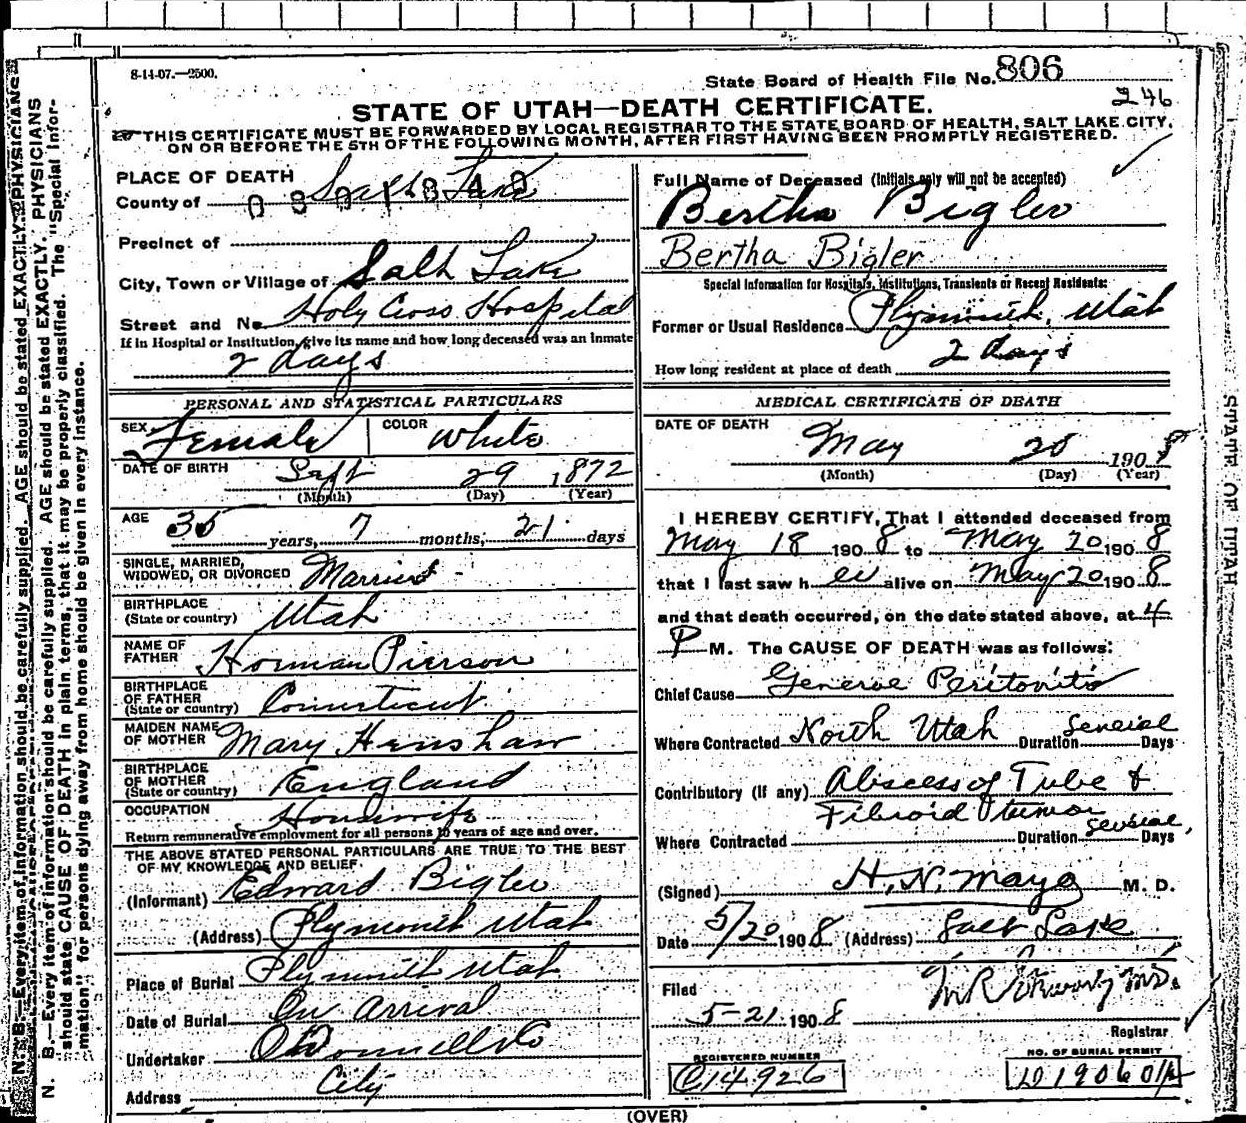 8-14-07.—2500.
State Board of Health File No. 806
246
STATE OF UTAH—DEATH CERTIFICATE.
THIS CERTIFICATE MUST BE FORWARDED BY LOCAL REGISTRAR TO THE STATE BOARD OF HEALTH, SALT LAKE CITY,
ON OR BEFORE THE 5TH OF THE FOLLOWING MONTH, AFTER FIRST HAVING BEEN PROMPTLY REGISTERED.
PLACE OF DEATH
County of Salt Lake
Precinct of
City, Town or Village of Salt Lake
Street and No. Holy Cross Hospital
If in Hospital or Institution, give its name and how long deceased was an inmate
2 days
PERSONAL AND STATISTICAL PARTICULARS
SEX Female COLOR White
DATE OF BIRTH Sept 29 1872
(Month) (Day) (Year)
AGE 35 years, 7 months, 21 days
SINGLE, MARRIED,
WIDOWED, OR DIVORCED Married
BIRTHPLACE
(State or country) Utah
NAME OF
FATHER Horman Pierson
BIRTHPLACE
OF FATHER
(State or country) Connecticut
MAIDEN NAME
OF MOTHER Mary Henshaw
BIRTHPLACE
OF MOTHER
(State or country) England
OCCUPATION Housewife
Return remunerative employment for all persons 10 years of age and over.
THE ABOVE STATED PERSONAL PARTICULARS ARE TRUE TO THE BEST
OF MY KNOWLEDGE AND BELIEF.
(Informant) Edward Bigler
(Address) Plymouth Utah
Place of Burial Plymouth Utah
Date of Burial On Arrival
Undertaker O'Donnell & Co
Address City
Full Name of Deceased (Initials only will not be accepted)
Bertha Bigler
Bertha Bigler
Special Information for Hospitals, Institutions, Transients or Recent Residents:
Former or Usual Residence Plymouth, Utah
How long resident at place of death 2 days
MEDICAL CERTIFICATE OF DEATH
DATE OF DEATH
May 20 1908
(Month) (Day) (Year)
I HEREBY CERTIFY, That I attended deceased from
May 18 1908 to May 20 1908
that I last saw her alive on May 20 1908
and that death occurred, on the date stated above, at 4
P M. The CAUSE OF DEATH was as follows:
Chief Cause General Peritonitis
Where Contracted North Utah Duration several Days
Contributory (if any) Abscess of Tube &
Fibroid tumor
Where Contracted Duration several Days
(Signed) H. N. Mayo M. D.
Date 5/20 1908 (Address) Salt Lake
Filed
5-21 1908
Registrar
REGISTERED NUMBER
C14926
NO. OF BURIAL PERMIT
(OVER)
N. B.—Every item of information should be carefully supplied. AGE should be stated EXACTLY. PHYSICIANS
should state CAUSE OF DEATH in plain terms, that it may be properly classified. The "Special Infor-
mation" for persons dying away from home should be given in every instance.
STATE OF UTAH